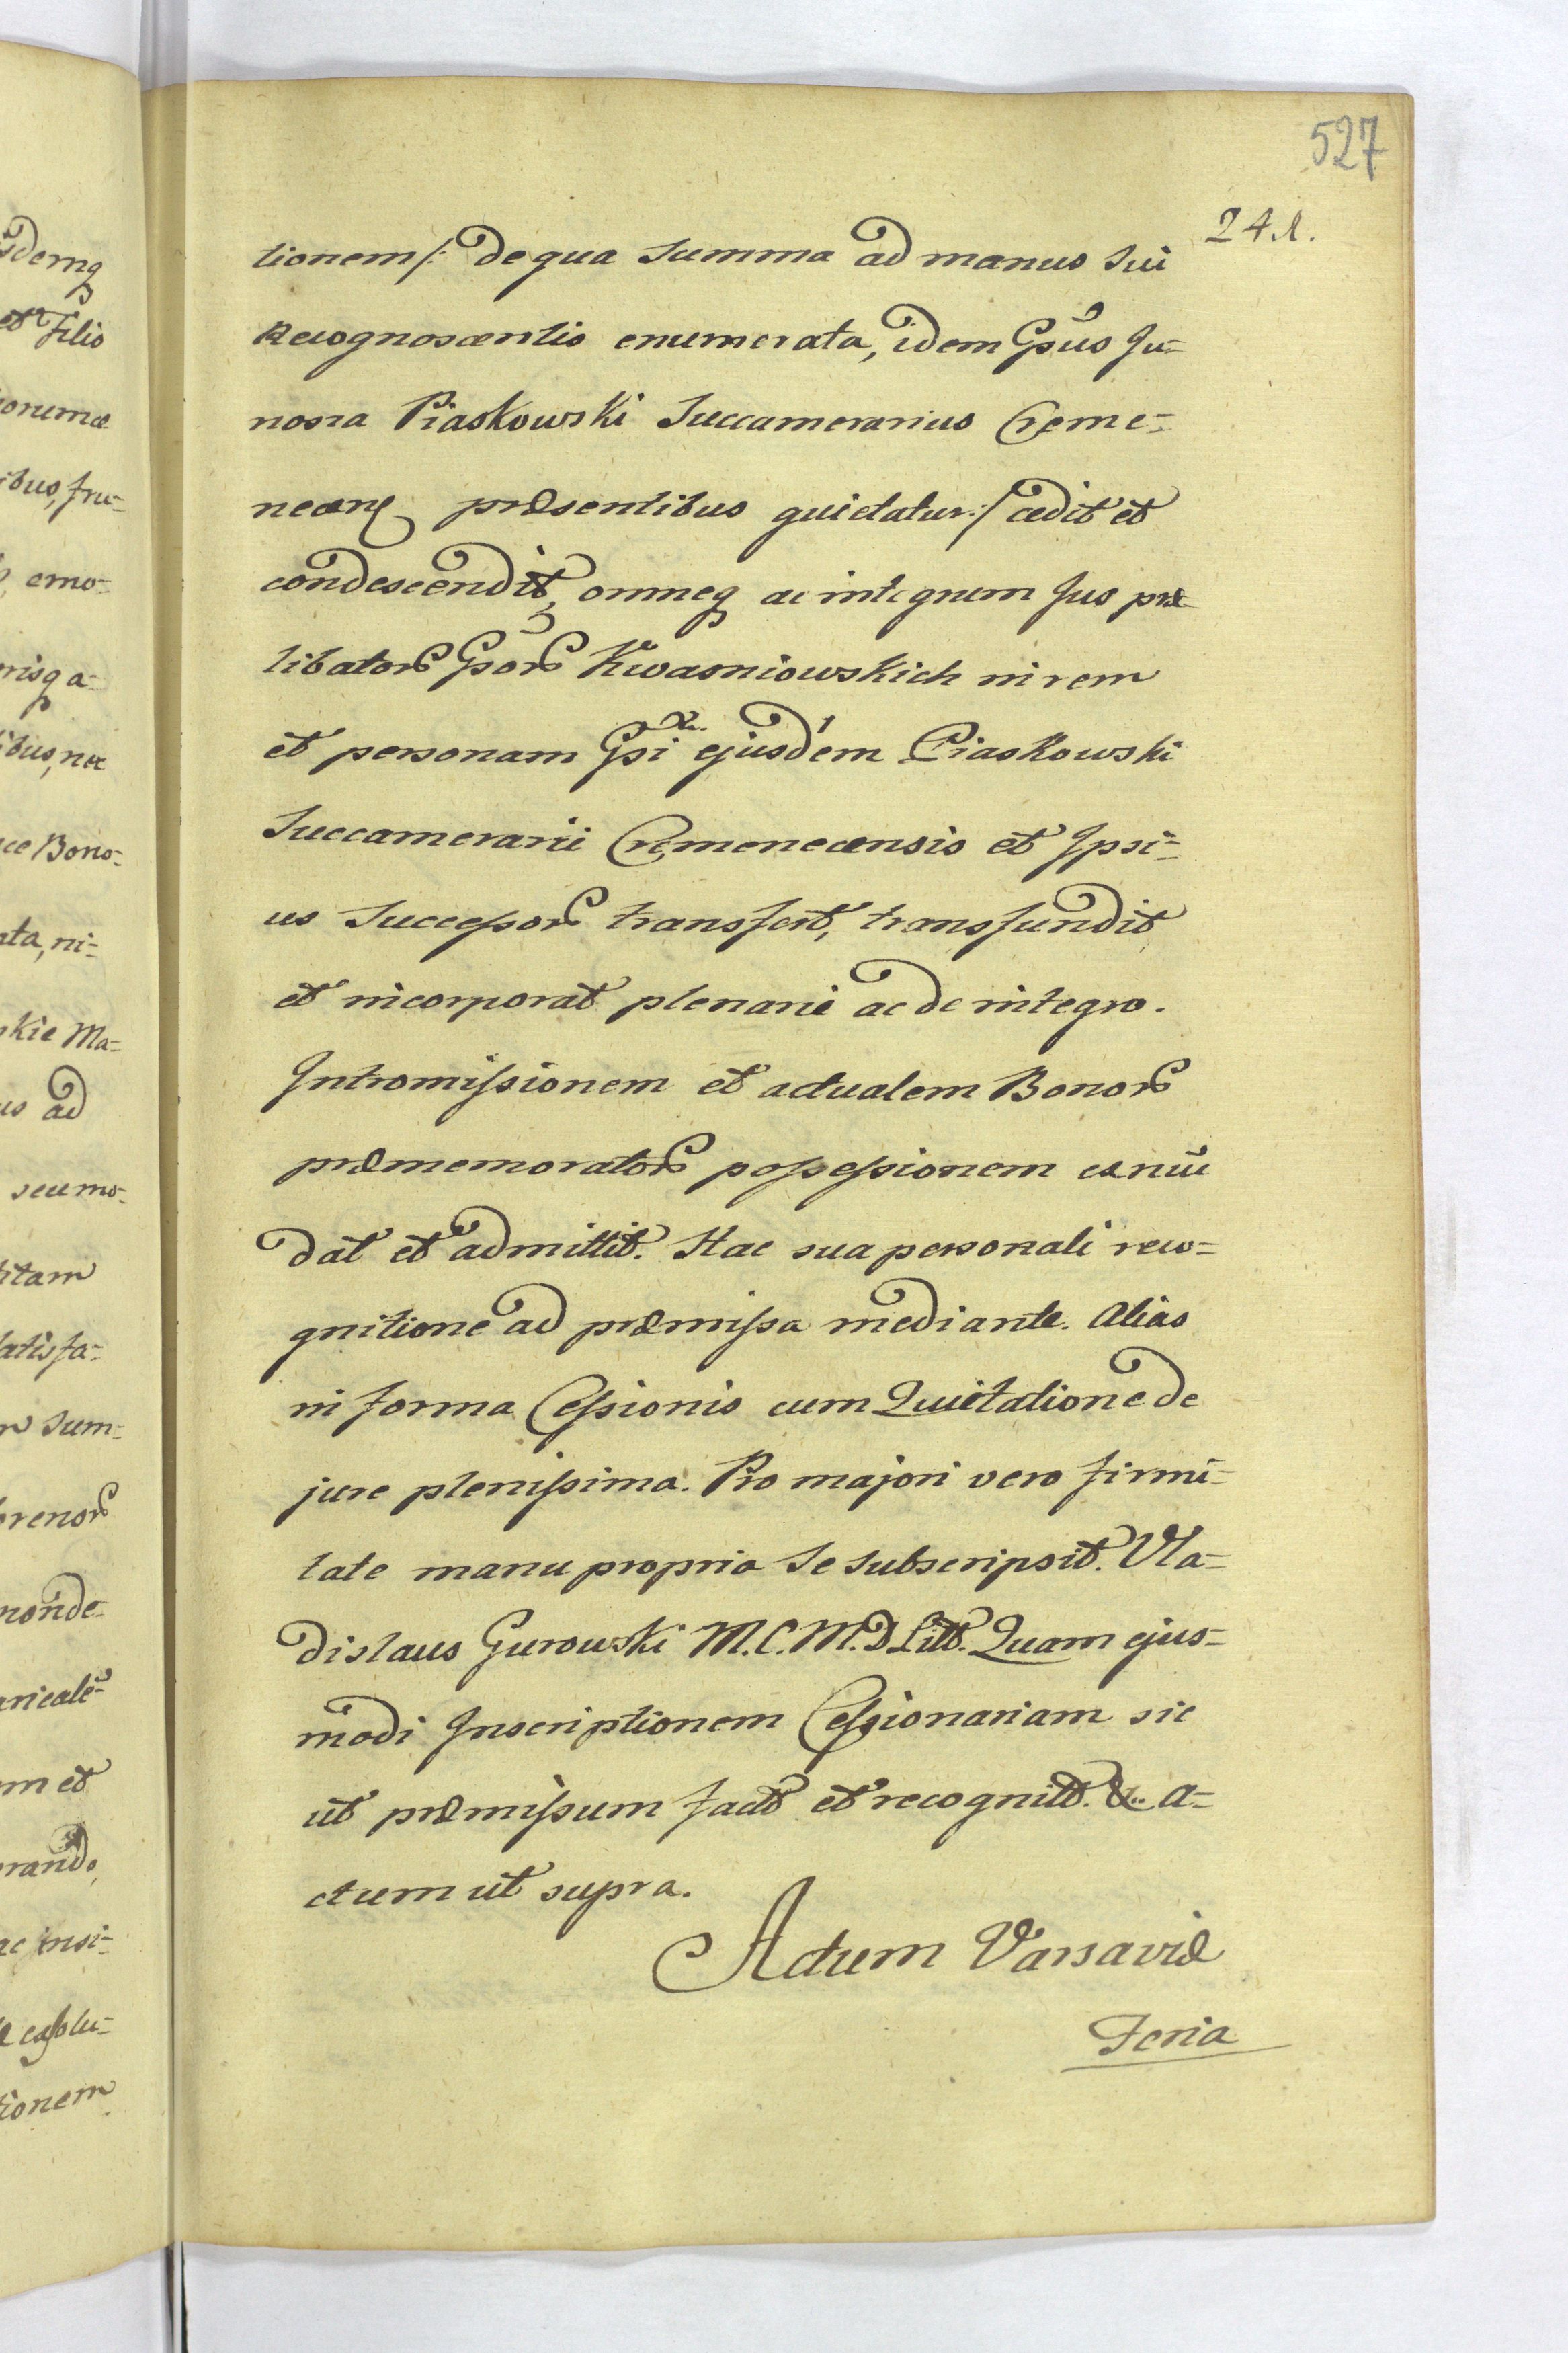 527
24.1.
tionem/: de qua Summa ad manus Sui
Recognoscentis enumerata, idem Gsus Ju=
nosza Piaskowski Succamerarius Creme=
necen presentibus quietatur:/ cedit et
condescendit, omneq ac integrum Jus præ
libator Gsor Kwasniowskich in rem
et personam Gsi ejusdem Piaskowski
Succamerarii Cremenecensis et Ipsi=
us Successor transfert, transfundit
et incorporat plenarie ac de integro.
Intromissionem et actualem Bonor
præmemorator possessionem ex nunc
dat et admittit. Hac sua personali reco=
gnitione ad præmissa mediante. Alias
in forma Cessionis cum Quietatione de
jure plenissima. Pro majori vero firmi=
tate manu propria se subscripsit. Vla=
dislaus Gurowski M.C.M.D Litt. Quam ejus=
modi Inscriptionem Cessionariam sic
ut præmissum fact et recognitt. &. A=
ctum ut supra.
Actum Varsaviæ
Feria
idemq
et Filio
ibus, fru=
emo=
risq a=
ibus, nec
Bono=
ata, ni=
skie Ma=
us ad
seu mo=
titam
satisfa=
Sum=
et
ac insi=
tionem